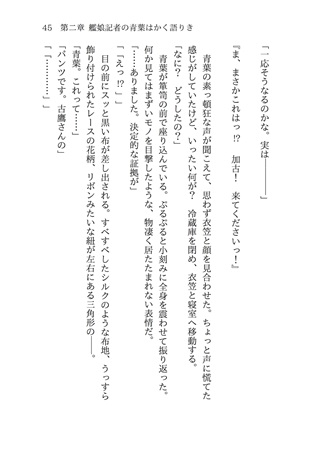 45　第二章 艦娘記者の青葉はかく語りき
「一応そうなるのかな。実は━━━━」
『ま、まさかこれはっ!?　加古！　来てくださいっ！』
　青葉の素っ頓狂な声が聞こえて、思わず衣笠と顔を見合わせた。ちょっと声に慌てた
感じがしていたけど、いったい何が？　冷蔵庫を閉め、衣笠と寝室へ移動する。
「なに？　どうしたの？」
　青葉が箪笥の前で座り込んでいる。ぷるぷると小刻みに全身を震わせて振り返った。
何か見てはまずいモノを目撃したような、物凄く居たたまれない表情だ。
「……ありました。決定的な証拠が」
「「えっ!?」」
　目の前にスッと黒い布が差し出される。すべすべしたシルクのような布地、うっすら
飾り付けられたレースの花柄、リボンみたいな紐が左右にある三角形の━━。
「青葉。これって……」
「パンツです。古鷹さんの」
「「…………」」